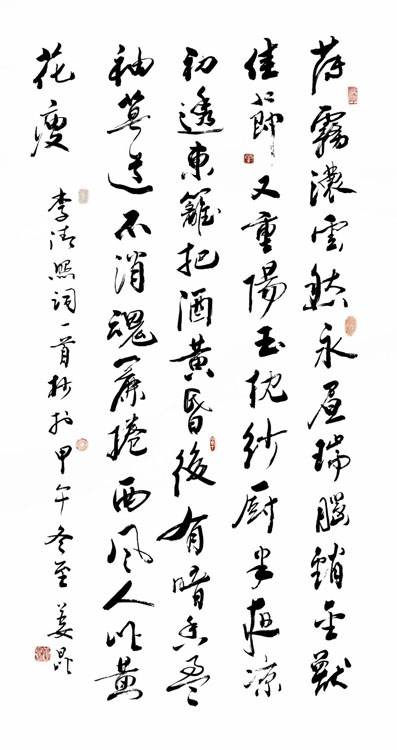 薄霧濃雲愁永晝瑞腦銷金獸
佳節又重陽玉枕紗厨半夜涼
初透東籬把酒黃昏後有暗香盈
袖莫道不消魂簾捲西風人比黃
花瘦
李清照詞一首抄於甲午冬至姜昆